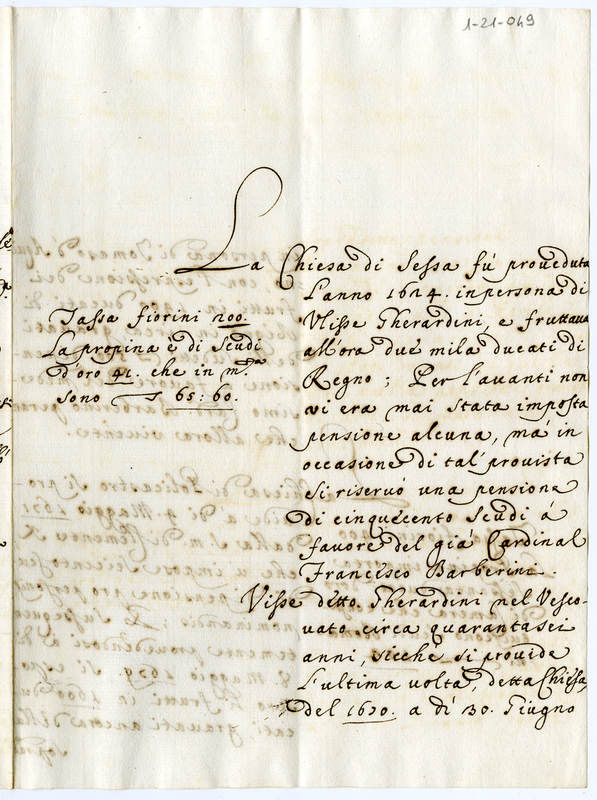 1-21-049
La Chiesa di Sessa fú proueduta
l'anno 1624. in persona di
Vlisse Gherardini, e fruttaua
all'ora due mila ducati di
Regno; Per l'auanti non
vi era mai stata imposta
pensione alcuna, má in
occasione di tal prouista
si riseruó una pensione
di cinquecento scudi á
fauore del giá Cardinal
Francesco Barberini.
Visse detto Gherardini nel Vesco-
uato circa quarantasei
anni, sicché si prouide
l'ultima volta, detta Chiesa,
del 1670. a dí 30. Giugno
Tassa fiorini 200.
La propina è di scudi
d'oro 41. che in m.ta
sono 65:60.